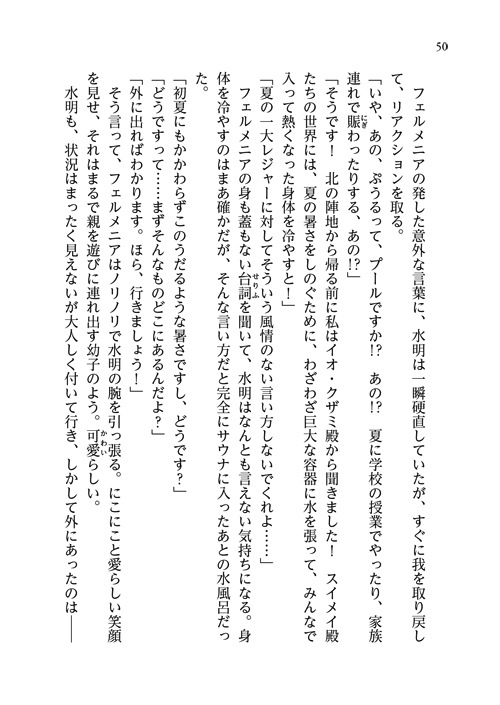 50
　フェルメニアの発した意外な言葉に、水明は一瞬硬直していたが、すぐに我を取り戻し
て、リアクションを取る。
「いや、あの、ぷうるって、プールですか!?　あの!?　夏に学校の授業でやったり、家族
連れで賑わったりする、あの!?」
「そうです！　北の陣地から帰る前に私はイオ・クザミ殿から聞きました！　スイメイ殿
たちの世界には、夏の暑さをしのぐために、わざわざ巨大な容器に水を張って、みんなで
入って熱くなった身体を冷やすと！」
「夏の一大レジャーに対してそういう風情のない言い方しないでくれよ……」
　フェルメニアの身も蓋もない台詞を聞いて、水明はなんとも言えない気持ちになる。身
体を冷やすのはまあ確かだが、そんな言い方だと完全にサウナに入ったあとの水風呂だっ
た。
「初夏にもかかわらずこのうだるような暑さですし、どうです？」
「どうですって……まずそんなものどこにあるんだよ？」
「外に出ればわかります。ほら、行きましょう！」
　そう言って、フェルメニアはノリノリで水明の腕を引っ張る。にこにこと愛らしい笑顔
を見せ、それはまるで親を遊びに連れ出す幼子のよう。可愛らしい。
　水明も、状況はまったく見えないが大人しく付いて行き、しかして外にあったのは――
にぎ
せりふ
かわい